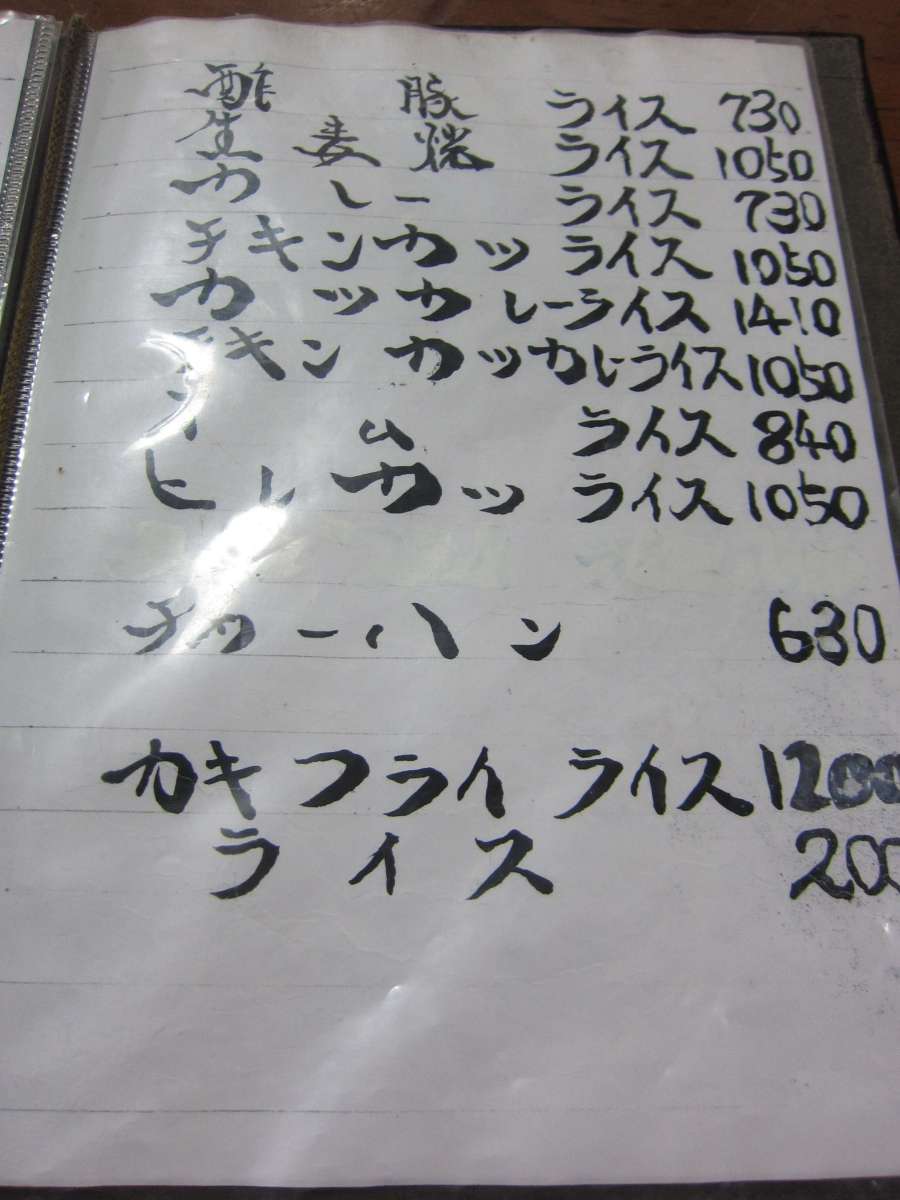 酢豚ライス 730
生姜焼ライス 1050
カレーライス 730
チキンカツライス 1050
カツカレーライス 1410
チキンカツカレライス 1050
オムライス 840
ヒレカツライス 1050
チャーハン 630
カキフライライス 1200
ライス 200